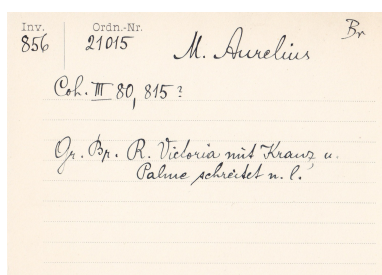 Inv. Ordn.-Nr. Br
856 21015 M. Aurelius
Coh. III 80, 815?
Gr. Br. R. Victoria mit Kranz u.
Palme schreitet n. l.